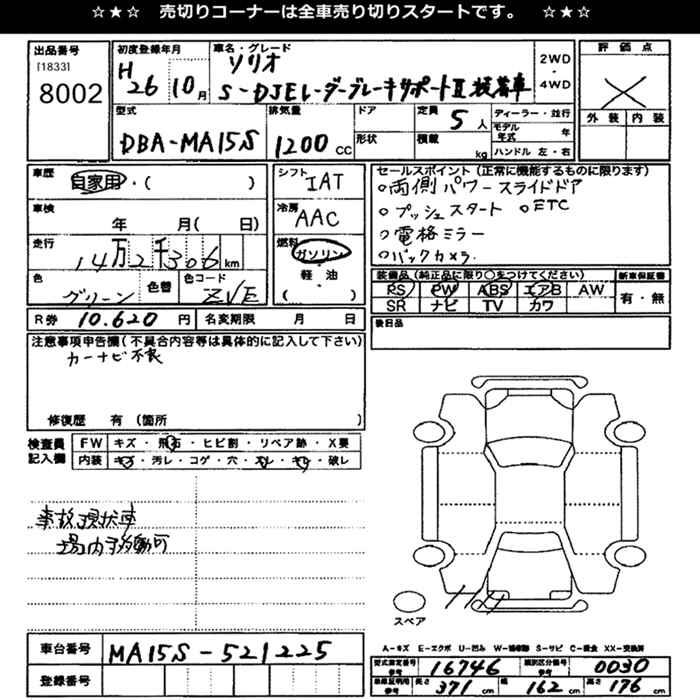 ☆★☆ 売切りコーナーは全車売り切りスタートです。 ☆★☆
出品番号
[1833]
8002
初度登録年月
H26 10月
車名・グレード
ソリオ
S-DJEレーダーブレーキサポートⅡ装着車
2WD・4WD
評価点
外装 内装
型式
DBA-MA15S
排気量
1200 CC
ドア
形状
定員 5人
積載 kg
ディーラー・並行
モデル年式 年
ハンドル 左・右
車歴
自家用・( )
車検
年 月( 日)
走行
14万2千306km
色
グリーン
色替
色コード
ZVE
シフト
IAT
冷房
AAC
燃料
ガソリン
軽・油
( )
セールスポイント(正常に機能するものに限ります)
○両側パワースライドドア
○プッシュスタート ○ETC
○電格ミラー
○バックカメラ
装備品(純正品に限り○をつけてください)
PS PW ABS エアB AW
SR ナビ TV カワ
新車保証書
有・無
R券 10.620円
名変期限 月 日
後日品
注意事項申告欄(不具合内容等は具体的に記入して下さい)
カーナビ不良
修復歴 有(箇所 )
検査員記入欄
FW キズ・飛石・ヒビ割・リペア跡・X要
内装 キズ・汚レ・コゲ・穴・スレ・キレ・破レ
事故現状車
場内移動可
スペア
A-キズ E-エクボ U-凹み W-補修跡 S-サビ C-腐食 XX-交換済
車台番号
MA15S-521225
登録番号
型式指定番号 参考 16746
類別区分番号 参考 0030
車検証明用 参考 長さ 371cm 幅 162cm 高さ 176cm